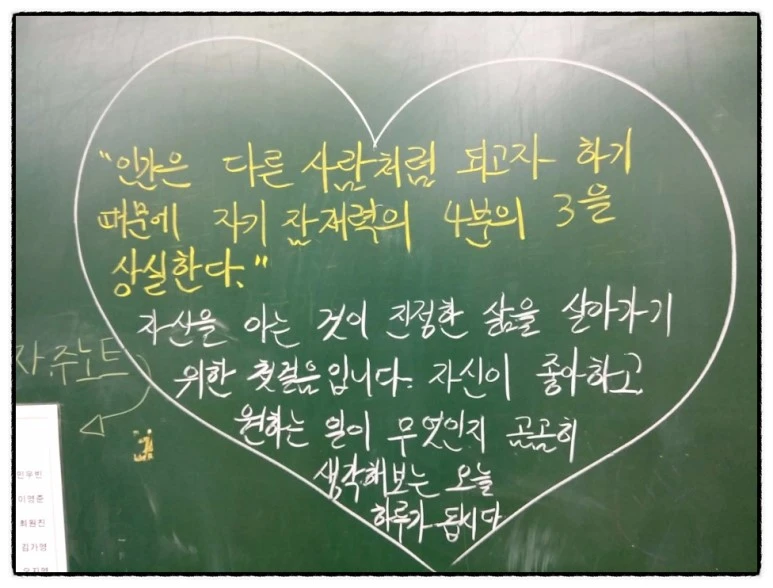 "인간은 다른 사람처럼 되고자 하기
때문에 자기 잠재력의 4분의 3을
상실한다."
자신을 아는 것이 진정한 삶을 살아가기
위한 첫걸음입니다. 자신이 좋아하고
원하는 일이 무엇인지 곰곰히
생각해보는 오늘
하루가 됩시다
자주노트
민우빈
이영준
최원진
김가영